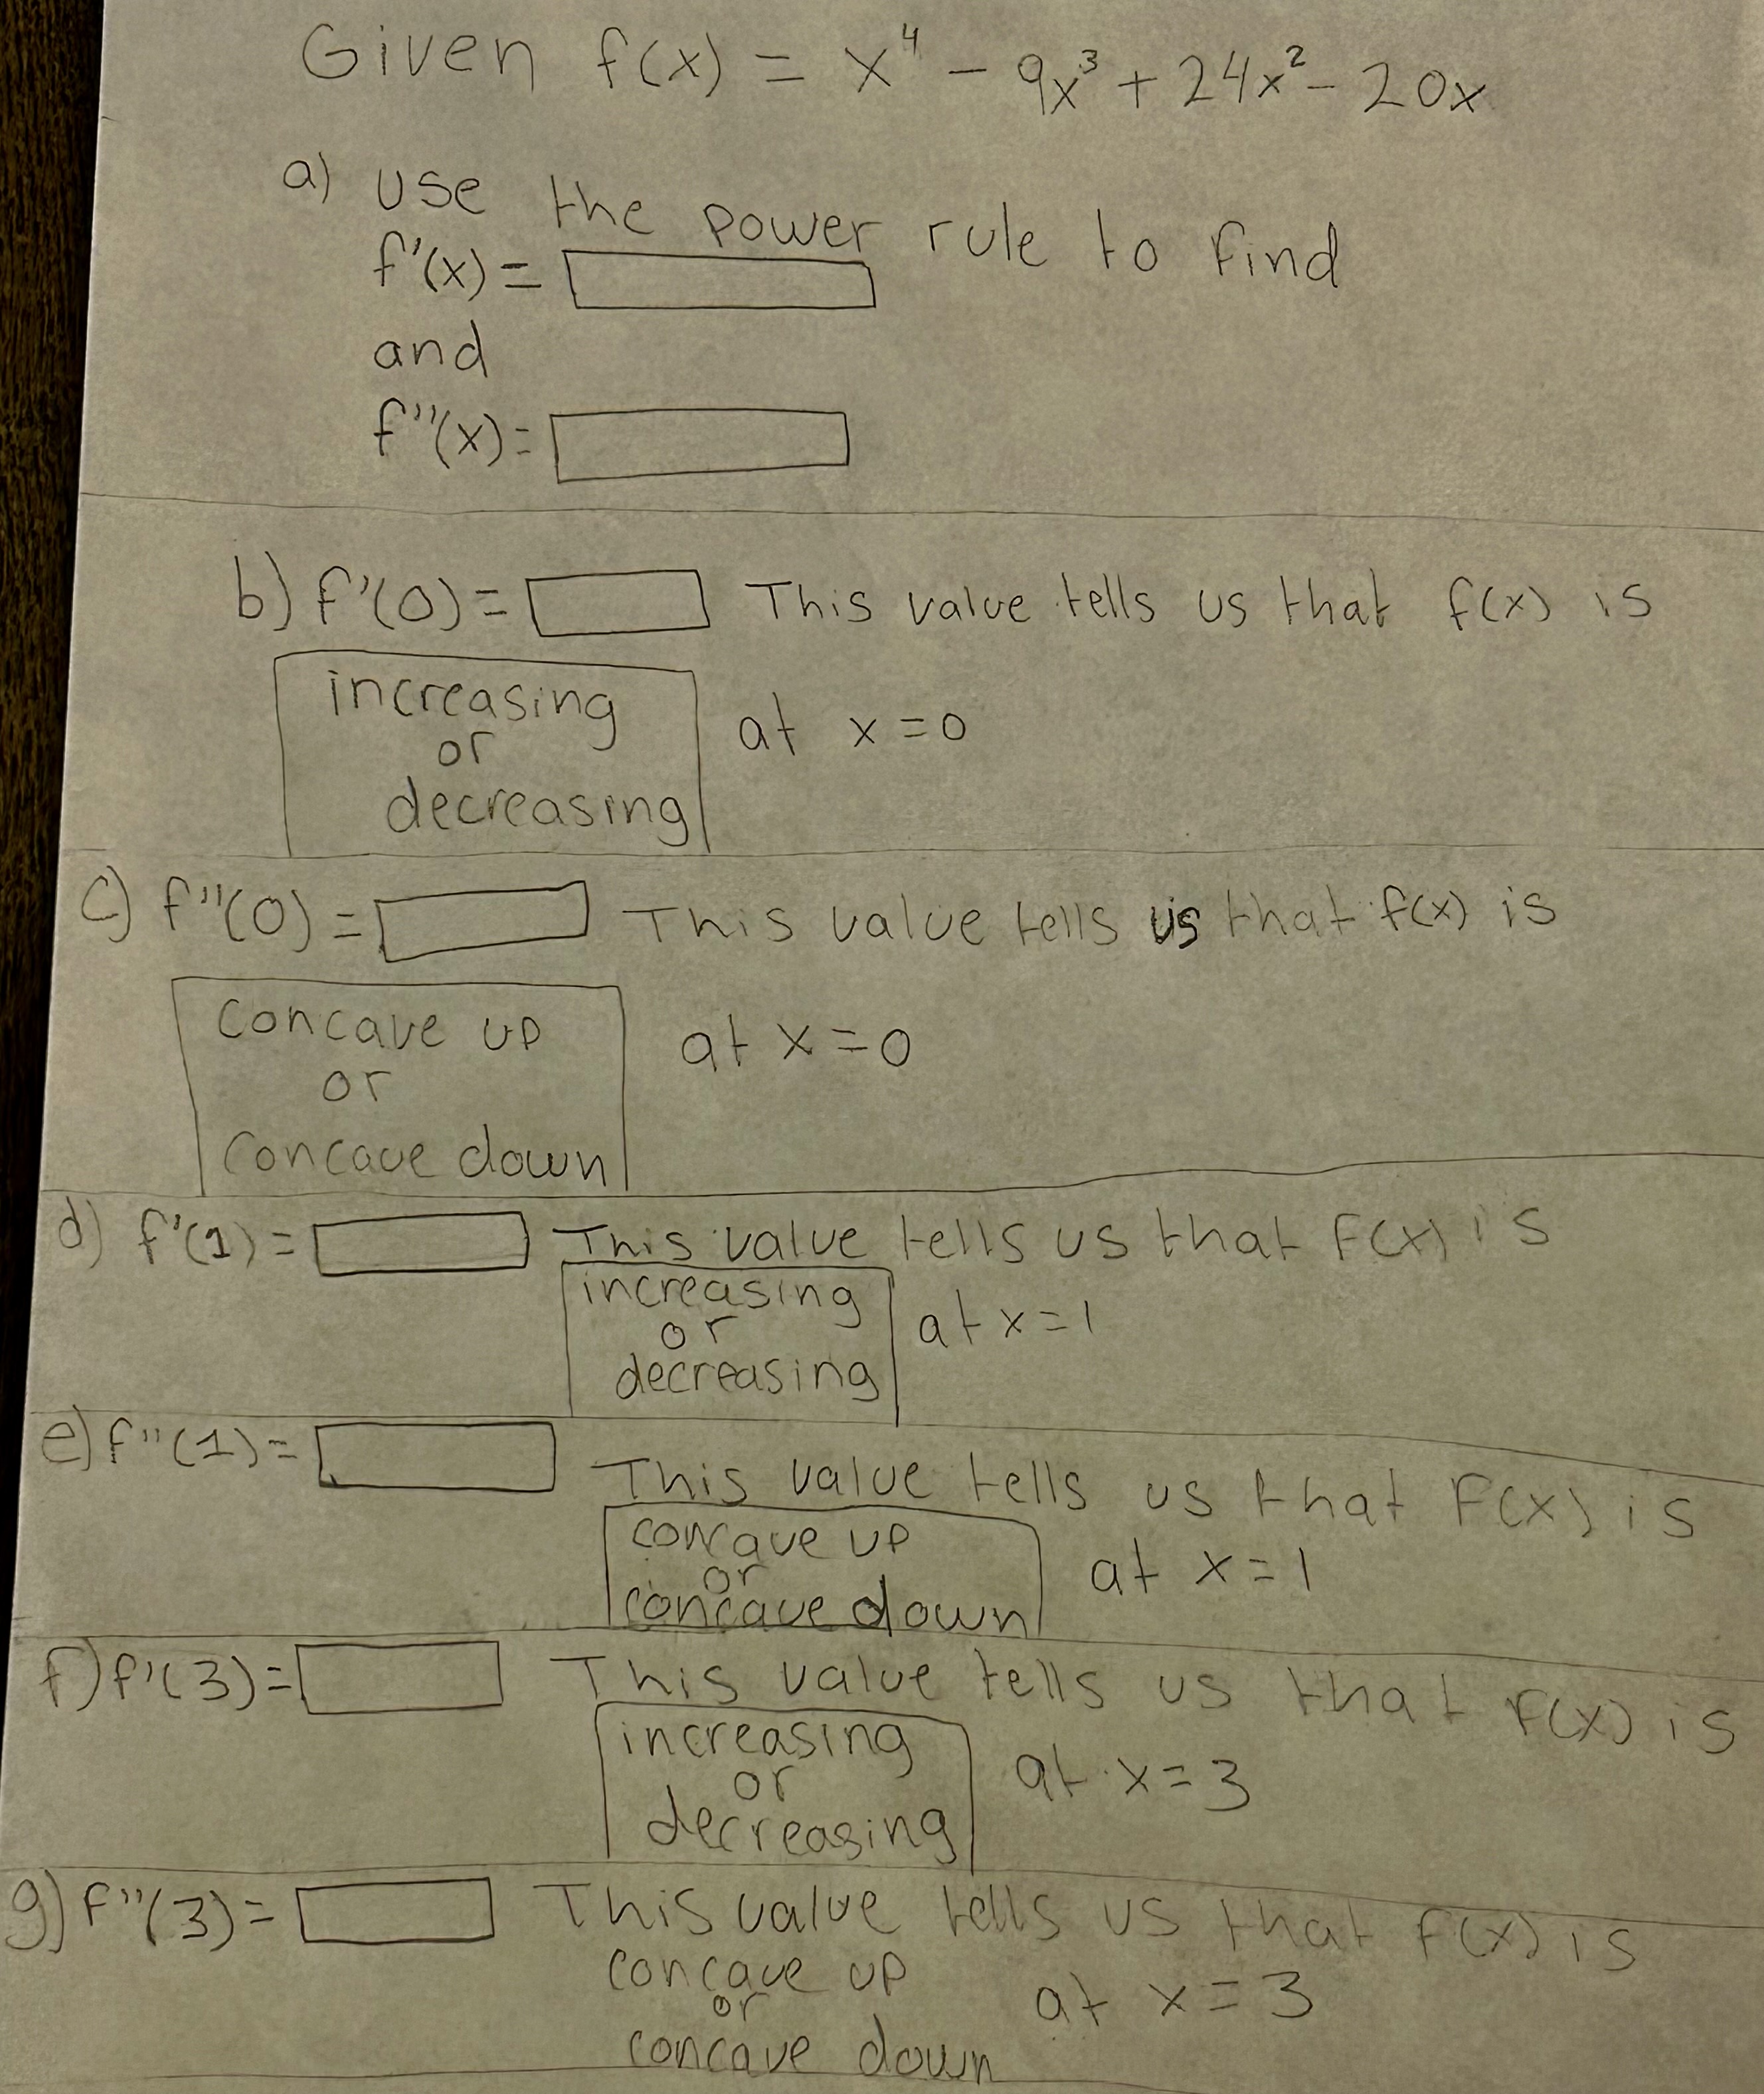 Given f(x) = x⁴ - 9x³ + 24x² - 20x
a) use the power rule to find
f'(x) =
and
f''(x) =
b) f'(0) = This value tells us that f(x) is
increasing
or
decreasing
at x = 0
c) f''(0) = This value tells us that f(x) is
concave up
or
concave down
at x = 0
d) f'(1) = This value tells us that f(x) is
increasing
or
decreasing
at x = 1
e) f''(1) = This value tells us that F(x) is
concave up
or
concave down
at x = 1
f) f'(3) = This value tells us that F(x) is
increasing
or
decreasing
at x = 3
g) f''(3) = This value tells us that f(x) is
concave up
or
concave down
at x = 3